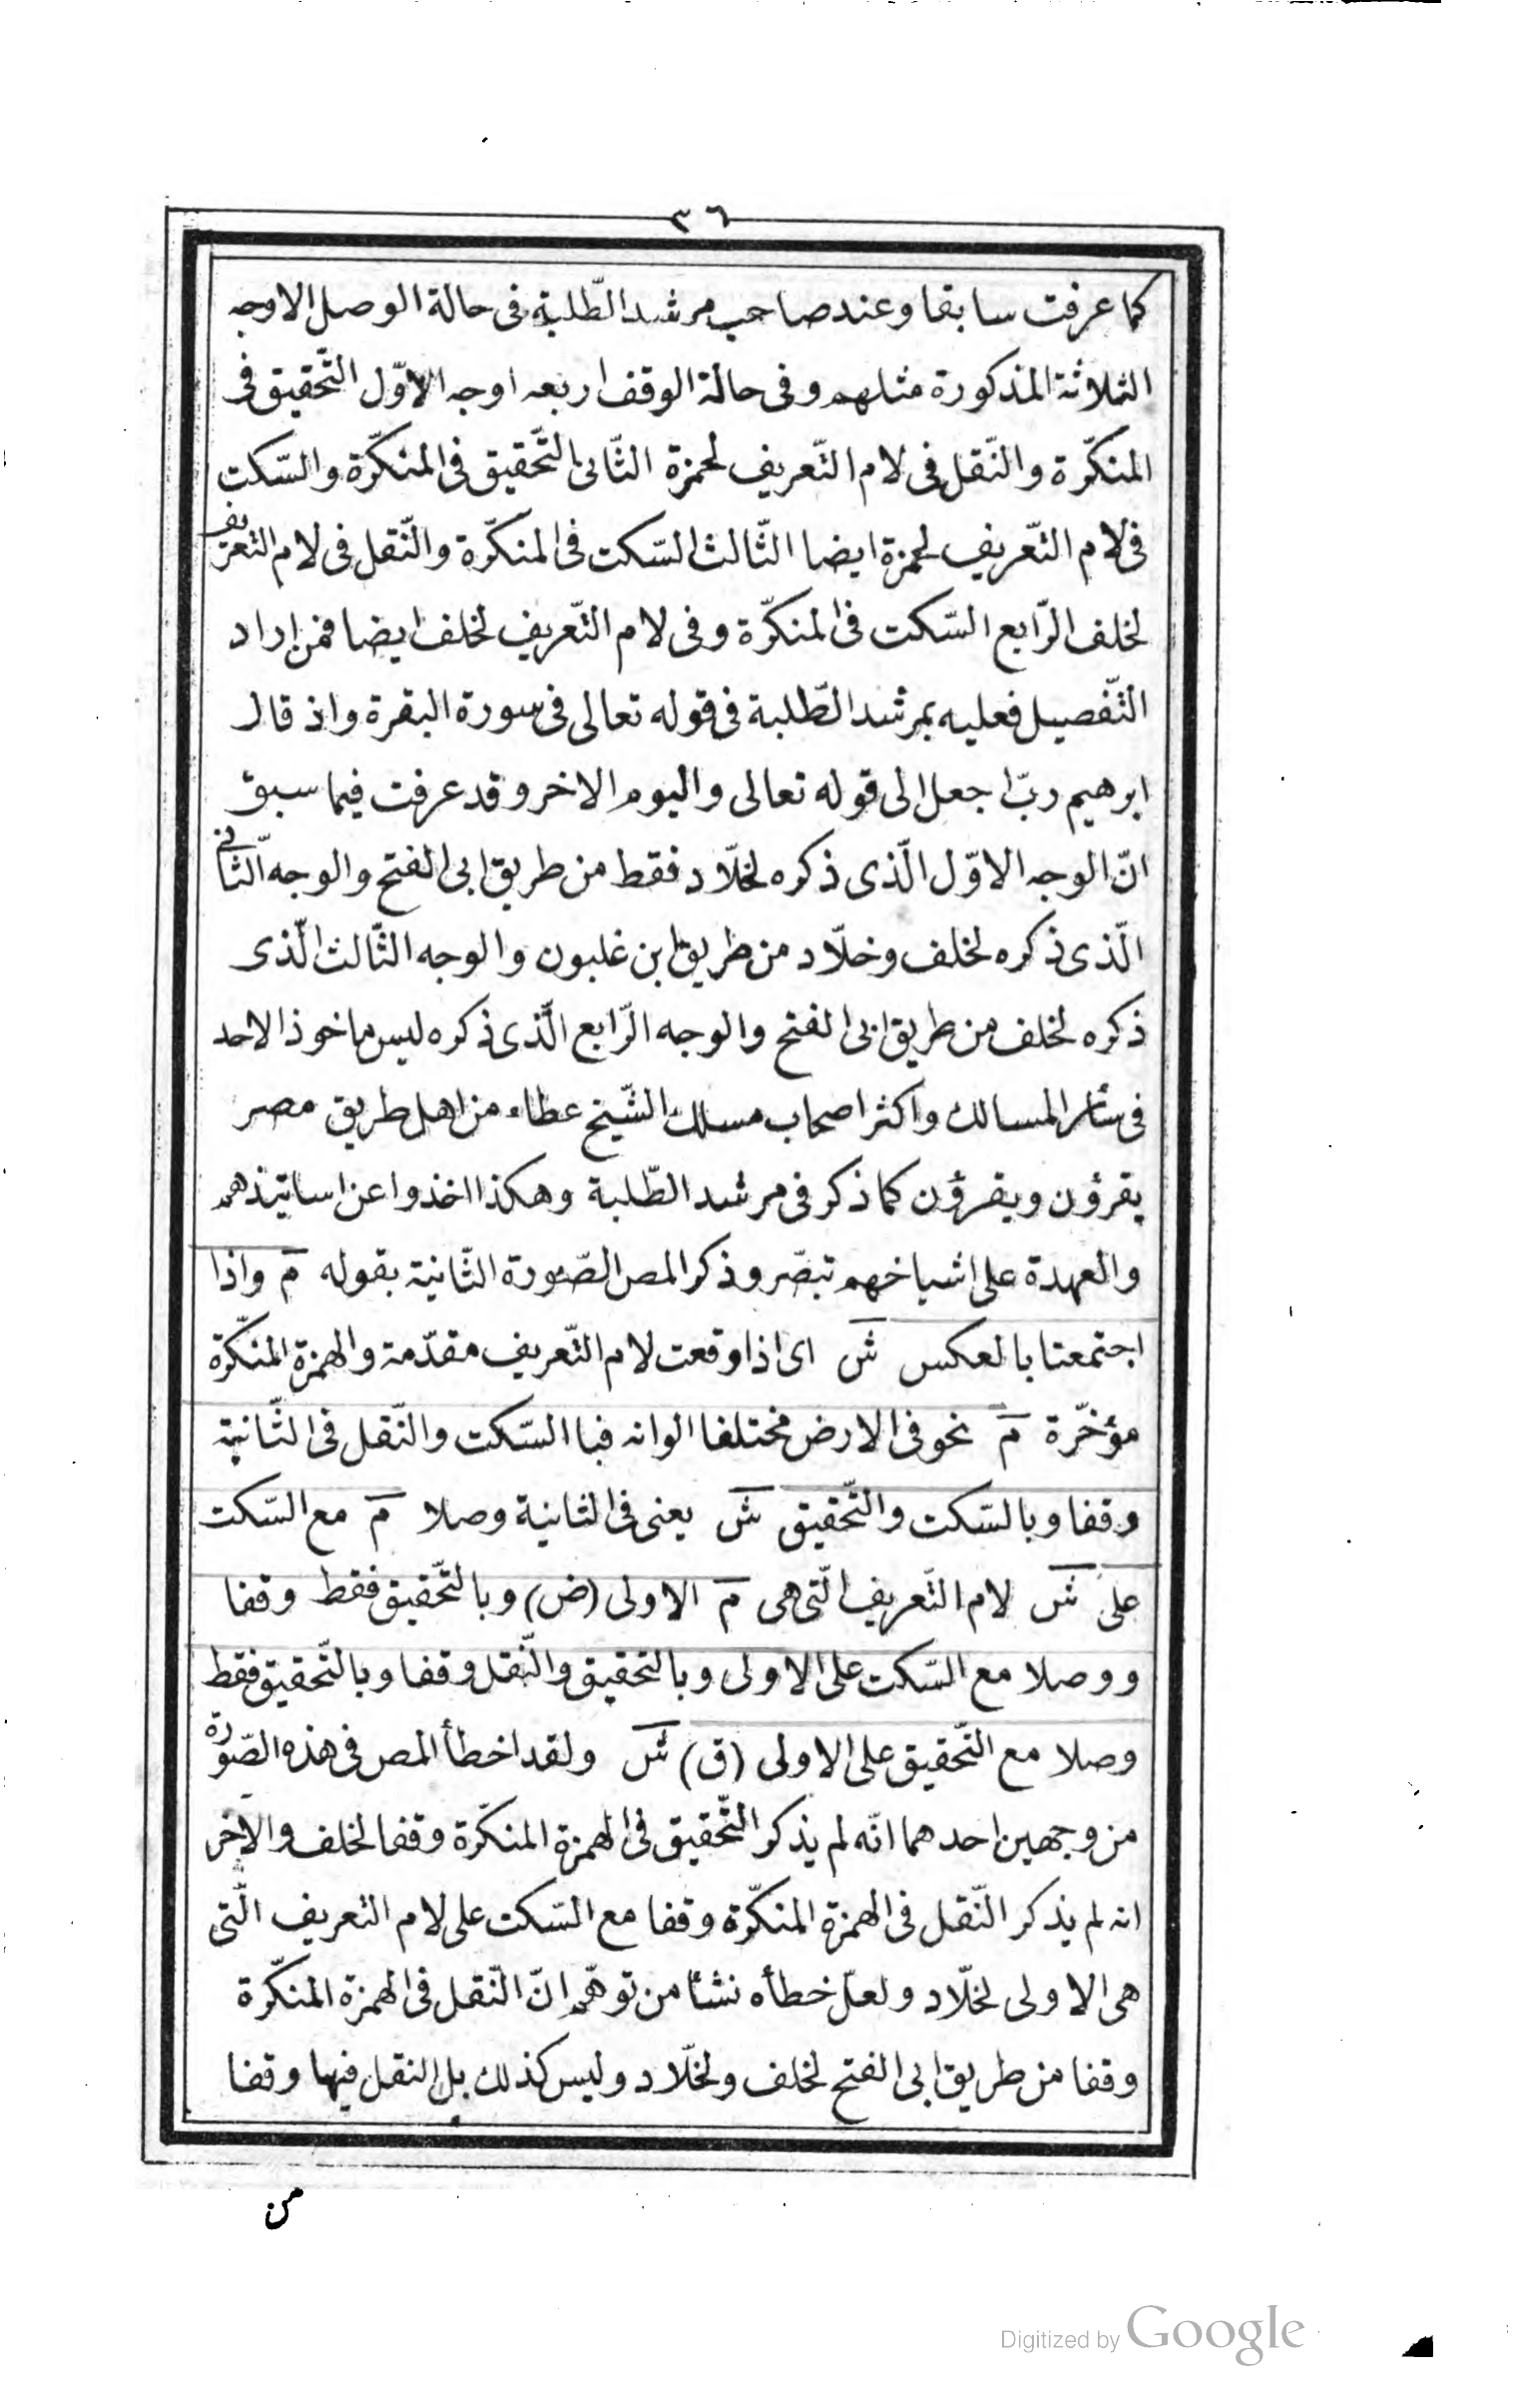 ٣٦
كما عرفت سابقا وعند صاحب مرشد الطّلبة فى حالة الوصل الاوجه
الثلاثة المذكورة مثلهم وفى حالة الوقف اربعه اوجه الاوّل التّحقيق فى
المنكّرة والنّقل فى لام التّعريف لحمزة الثّانى التّحقيق فى المنكّرة والسّكت
فى لام التّعريف لحمزة ايضا الثّالث السّكت فى المنكّرة والنّقل فى لام التعريف
لخلف الرّابع السّكت فى المنكّرة وفى لام التّعريف لخلف ايضا فمن اراد
التّفصيل فعليه بمرشد الطّلبة فى قوله تعالى فى سورة البقرة واذ قال
ابرهيم ربّ اجعل الى قوله تعالى واليوم الاخر وقد عرفت فيما سبق
انّ الوجه الاوّل الّذى ذكره لخلّاد فقط من طريق ابى الفتح والوجه الثّانى
الّذى ذكره لخلف وخلّاد من طريق ابن غلبون والوجه الثّالث الّذى
ذكره لخلف من طريق ابى الفتح والوجه الرّابع الّذى ذكره ليس ماخوذ الاحد
فى سائر المسالك واكثر اصحاب مسلك الشّيخ عطاء من اهل طريق مصر
يقرؤن ويقرؤن كما ذكر فى مرشد الطّلبة وهكذا اخذوا عن اساتيذهم
والعهدة على اشياخهم تبصّر وذكر المص الصّورة الثّانية بقوله م واذا
اجتمعتا بالعكس ش اى اذا وقعت لام التّعريف مقدّمة والهمزة المنكّرة
مؤخّرة م نحو فى الارض مختلفا الوانه فبا السّكت والنّقل فى الثّانية
وقفا وبالسّكت والتّحقيق ش يعنى فى الثانية وصلا م مع السّكت
على ش لام التّعريف الّتى هى م الاولى (ض) وبالتّحقيق فقط وقفا
ووصلا مع السّكت على الاولى وبالتحقيق والنّقل وقفا وبالتّحقيق فقط
وصلا مع التّحقيق على الاولى (ق) ش ولقد اخطأ المص فى هذه الصّورة
من وجهين احدهما انّه لم يذكر التّحقيق فى الهمزة المنكّرة وقفا لخلف والاخر
انه لم يذكر النّقل فى الهمزة المنكّرة وقفا مع السّكت على لام التعريف الّتى
هى الاولى لخلّاد ولعلّ خطأه نشأ من توهّم انّ النّقل فى الهمزة المنكّرة
وقفا من طريق ابى الفتح لخلف ولخلّاد وليس كذلك بل النقل فيها وقفا
من
Digitized by Google